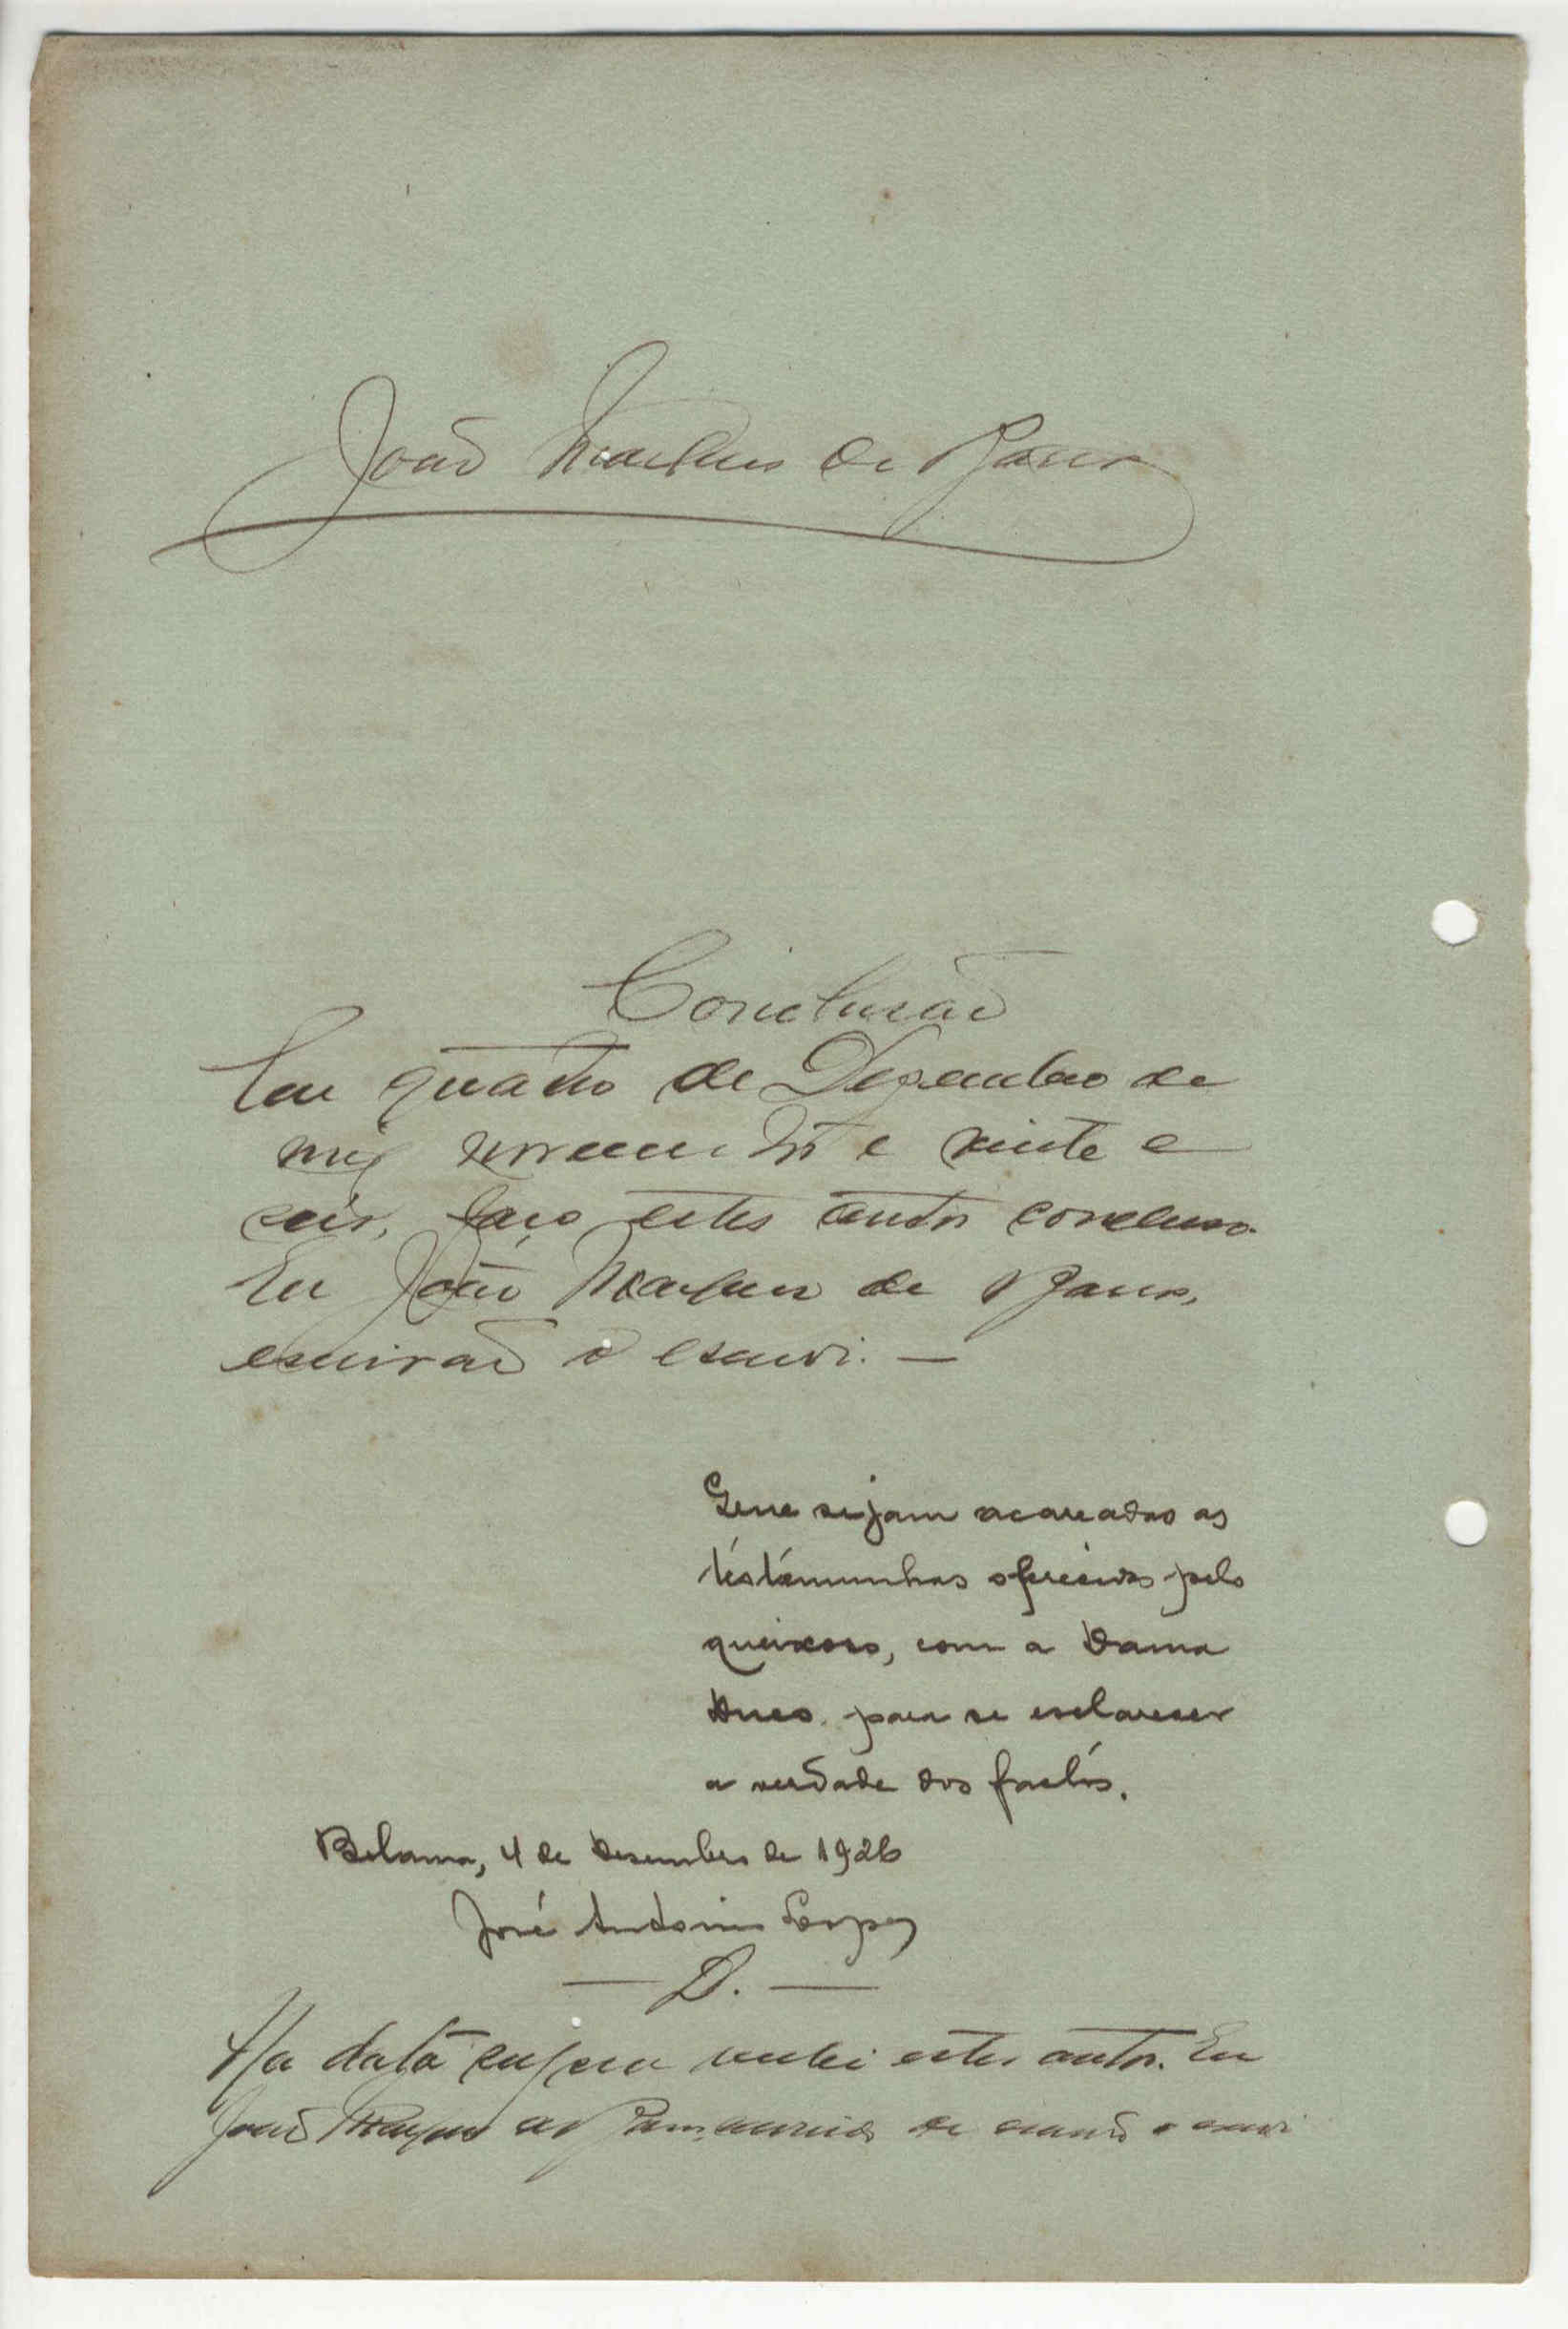 João Martins de Barros
Conclusão
Em quatro de Dezembro de
mil novecentos e vinte e
seis, faço estes autos conclusos.
Eu João Martins de Barros,
escrivão o escrevi. —
sejam acareados as
téstémunhas oferecidas pelo
queixoso, com a Dama
para se esclarecer
a verdade dos factos.
Bolama, 4 de Dezembro de 1926
José Antonio Lopes
— D. —
Na data supra recebi estes autos. Eu
João Martins de Barros, servindo de escrivão o escrevi